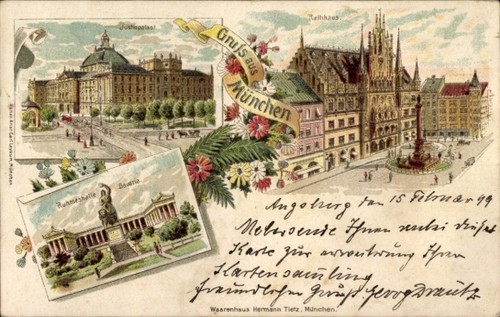 Justizpalast
Rathhaus.
Gruss aus
München
Ruhmeshalle Bavaria
Augsburg den 15 Februar 99
Ihnen diese
Karte zur Erweiterung Ihrer
Kartensammlung
freundlichen Gruß Georg
Waarenhaus Hermann Tietz, München.